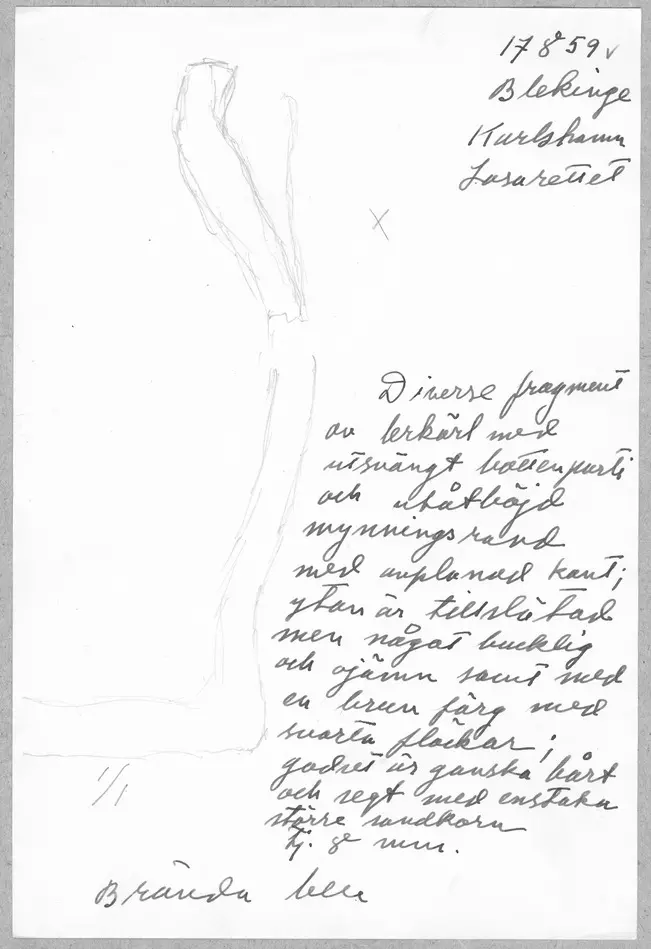 17859 v
Blekinge
Karlshamn
Lasarettet
X
Diverse fragment
av lerkärl med
utsvängt bottenparti
och utåtböjd
mynningsrand
med avplanad kant;
ytan är tillslätad
men något bucklig
och ojämn samt med
en brun färg med
svarta fläckar;
godset är ganska hårt
och segt med enstaka
större sandkorn
tj. 8 mm.
1/1
Brända ben